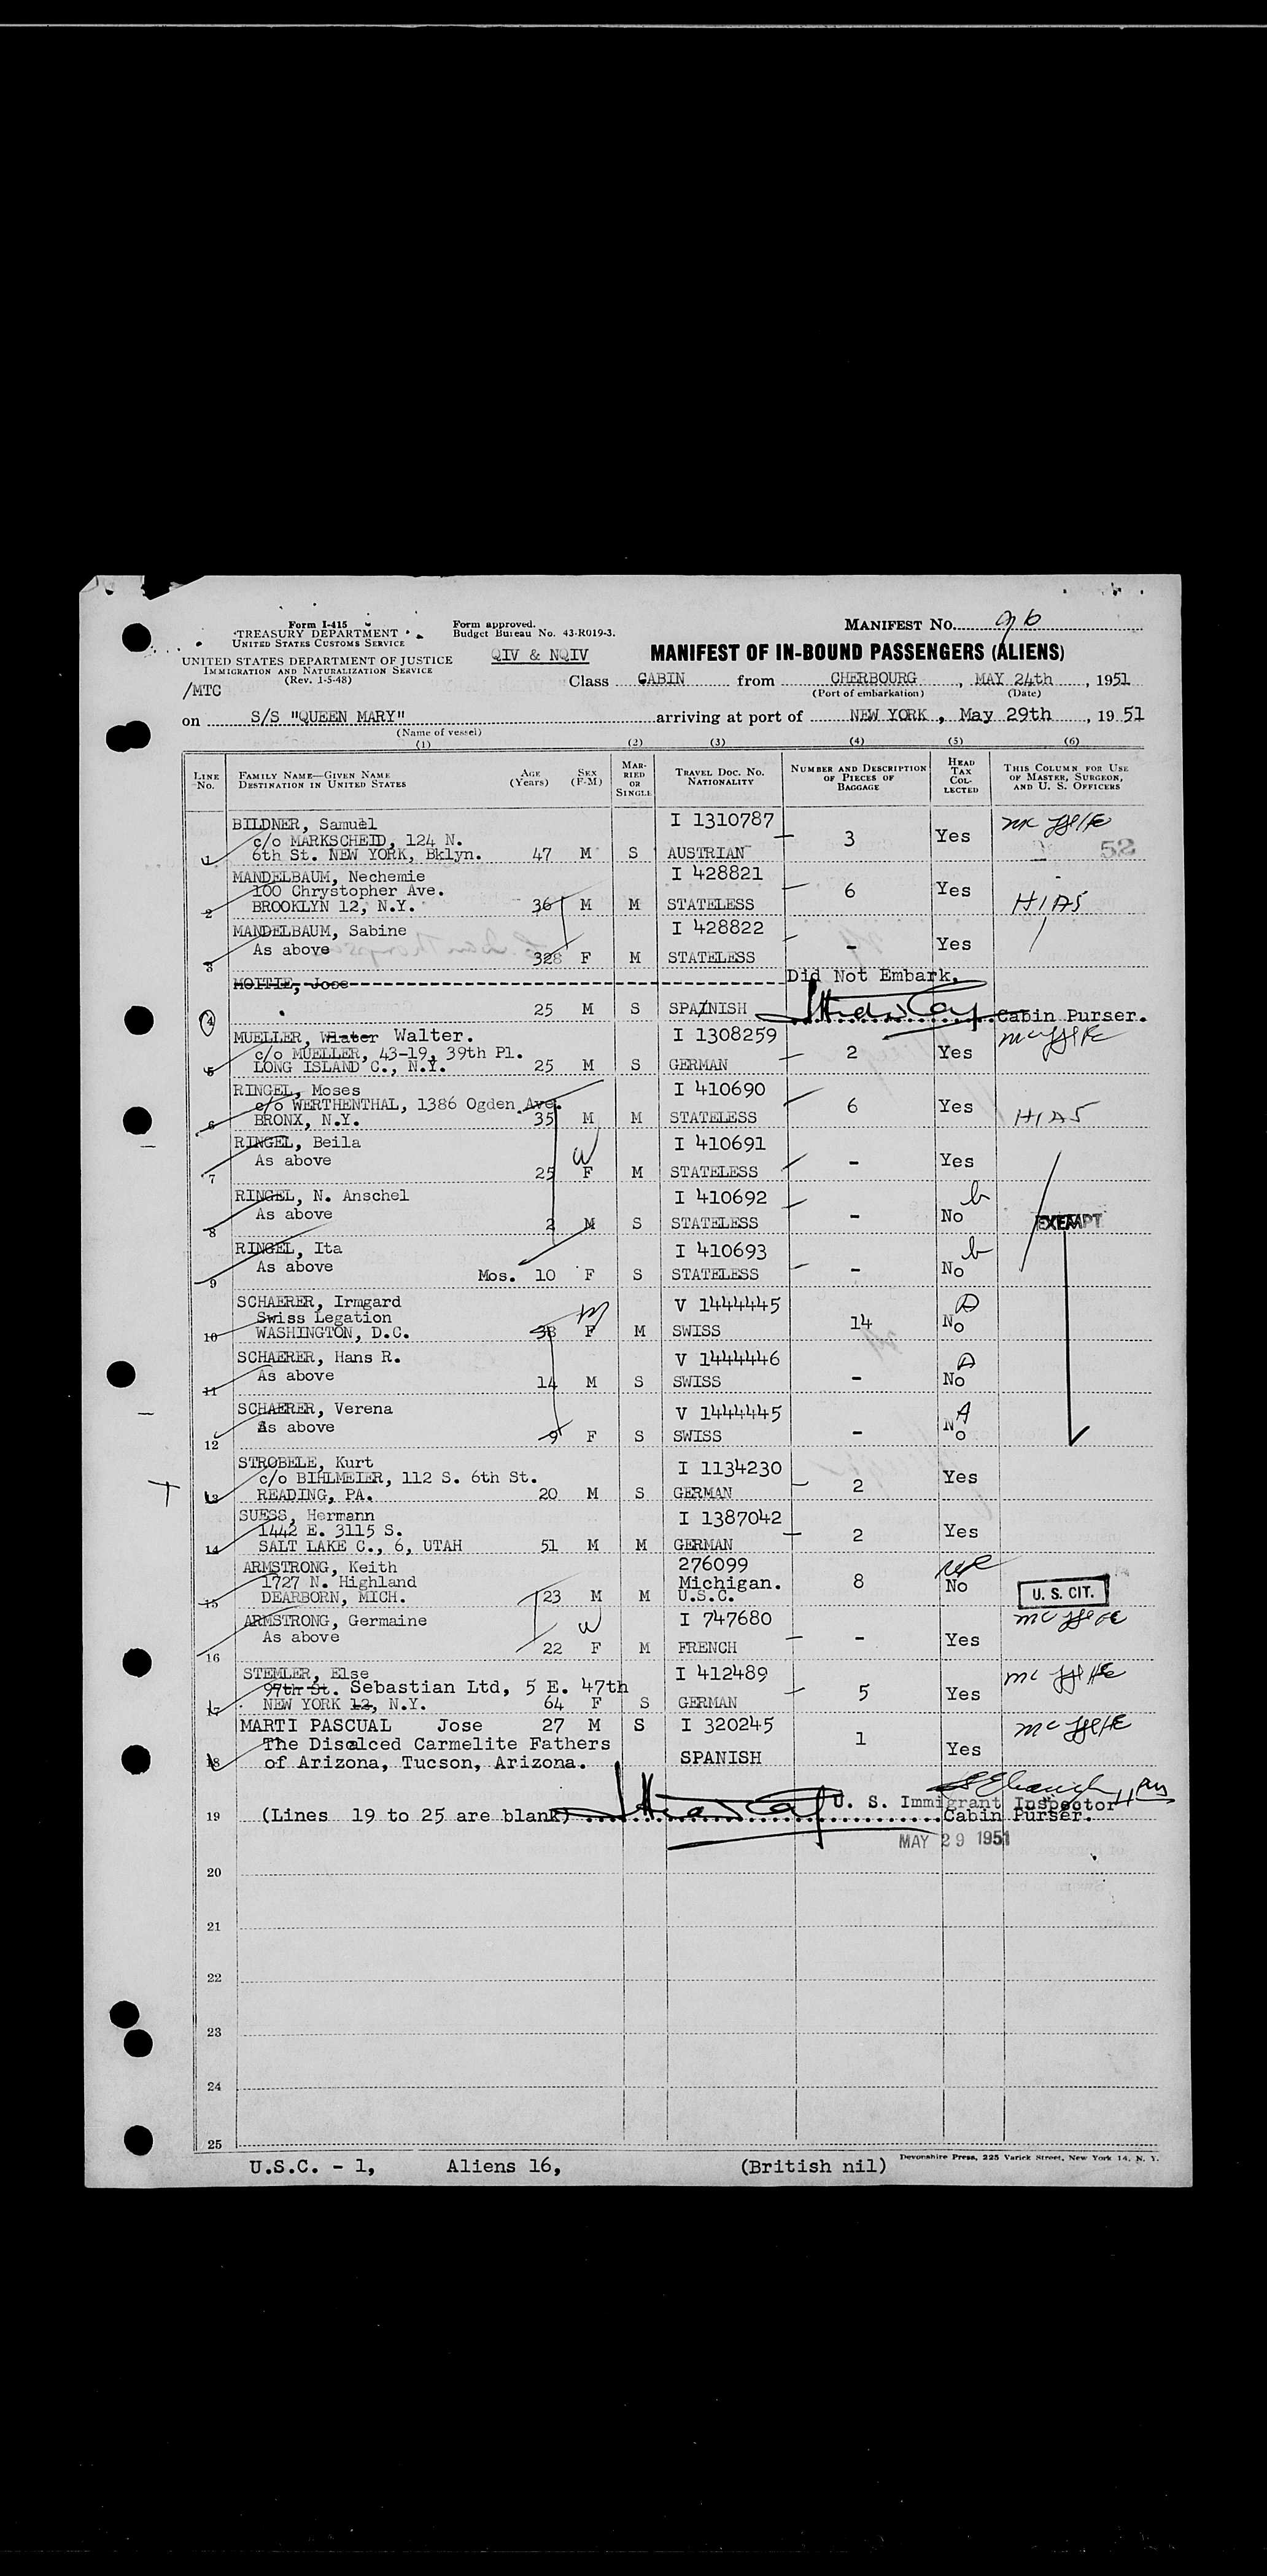 Form I-415
TREASURY DEPARTMENT
UNITED STATES CUSTOMS SERVICE
UNITED STATES DEPARTMENT OF JUSTICE
IMMIGRATION AND NATURALIZATION SERVICE
(Rev. 1-5-48)
/MTC
Form approved.
Budget Bureau No. 43-R019-3.
QIV & NQIV
MANIFEST NO. 96
MANIFEST OF IN-BOUND PASSENGERS (ALIENS)
Class CABIN from CHERBOURG, MAY 24th, 1951
(Port of embarkation) (Date)
on S/S "QUEEN MARY" arriving at port of NEW YORK, May 29th, 1951
(Name of vessel)
(1) (2) (3) (4) (5) (6)
LINE NO. FAMILY NAME—GIVEN NAME DESTINATION IN UNITED STATES AGE (Years) SEX (F-M) MARRIED OR SINGLE TRAVEL DOC. NO. NATIONALITY NUMBER AND DESCRIPTION OF PIECES OF BAGGAGE HEAD TAX COLLECTED THIS COLUMN FOR USE OF MASTER, SURGEON, AND U. S. OFFICERS
BILDNER, Samuel I 1310787
c/o MARKSCHEID, 124 N. 3 Yes 52
1 6th St. NEW YORK, Bklyn. 47 M S AUSTRIAN
MANDELBAUM, Nechemie I 428821
100 Chrystopher Ave. 6 Yes
2 BROOKLYN 12, N.Y. 36 M M STATELESS HIAS
MANDELBAUM, Sabine I 428822
As above - Yes
3 328 F M STATELESS
MOITIE, Jose Did Not Embark.
4 25 M S SPANISH Cabin Purser.
MUELLER, Wlater Walter. I 1308259
c/o MUELLER, 43-19, 39th Pl. 2 Yes
5 LONG ISLAND C., N.Y. 25 M S GERMAN
RINGEL, Moses I 410690
c/o WERTHENTHAL, 1386 Ogden Ave. 6 Yes
6 BRONX, N.Y. 35 M M STATELESS HIAS
RINGEL, Beila I 410691
As above W - Yes
7 25 F M STATELESS
RINGEL, N. Anschel I 410692 b
As above - No EXEMPT
8 2 M S STATELESS
RINGEL, Ita I 410693 b
As above - No
9 Mos. 10 F S STATELESS
SCHAERER, Irmgard V 1444445
Swiss Legation 14 No
10 WASHINGTON, D.C. 38 F M SWISS
SCHAERER, Hans R. V 1444446
As above - No
11 14 M S SWISS
SCHAERER, Verena V 1444445 A
As above - No
12 9 F S SWISS
STROBELE, Kurt I 1134230
c/o BIHLMEIER, 112 S. 6th St. 2 Yes
13 READING, PA. 20 M S GERMAN
SUESS, Hermann I 1387042
1442 E. 3115 S. 2 Yes
14 SALT LAKE C., 6, UTAH 51 M M GERMAN
ARMSTRONG, Keith 276099
1727 N. Highland Michigan. 8 No
15 DEARBORN, MICH. 23 M M U.S.C. U. S. CIT.
ARMSTRONG, Germaine I 747680
As above W - Yes
16 22 F M FRENCH
STEMLER, Else I 412489
97th St. Sebastian Ltd, 5 E. 47th 5 Yes
17 NEW YORK 12, N.Y. 64 F S GERMAN
MARTI PASCUAL Jose 27 M S I 320245
The Disalced Carmelite Fathers 1 Yes
18 of Arizona, Tucson, Arizona. SPANISH
U. S. Immigrant Inspector
19 (Lines 19 to 25 are blank) Cabin Purser.
MAY 29 1951
20
21
22
23
24
25
U.S.C. - 1, Aliens 16, (British nil)
Devonshire Press, 225 Varick Street, New York 14, N. Y.